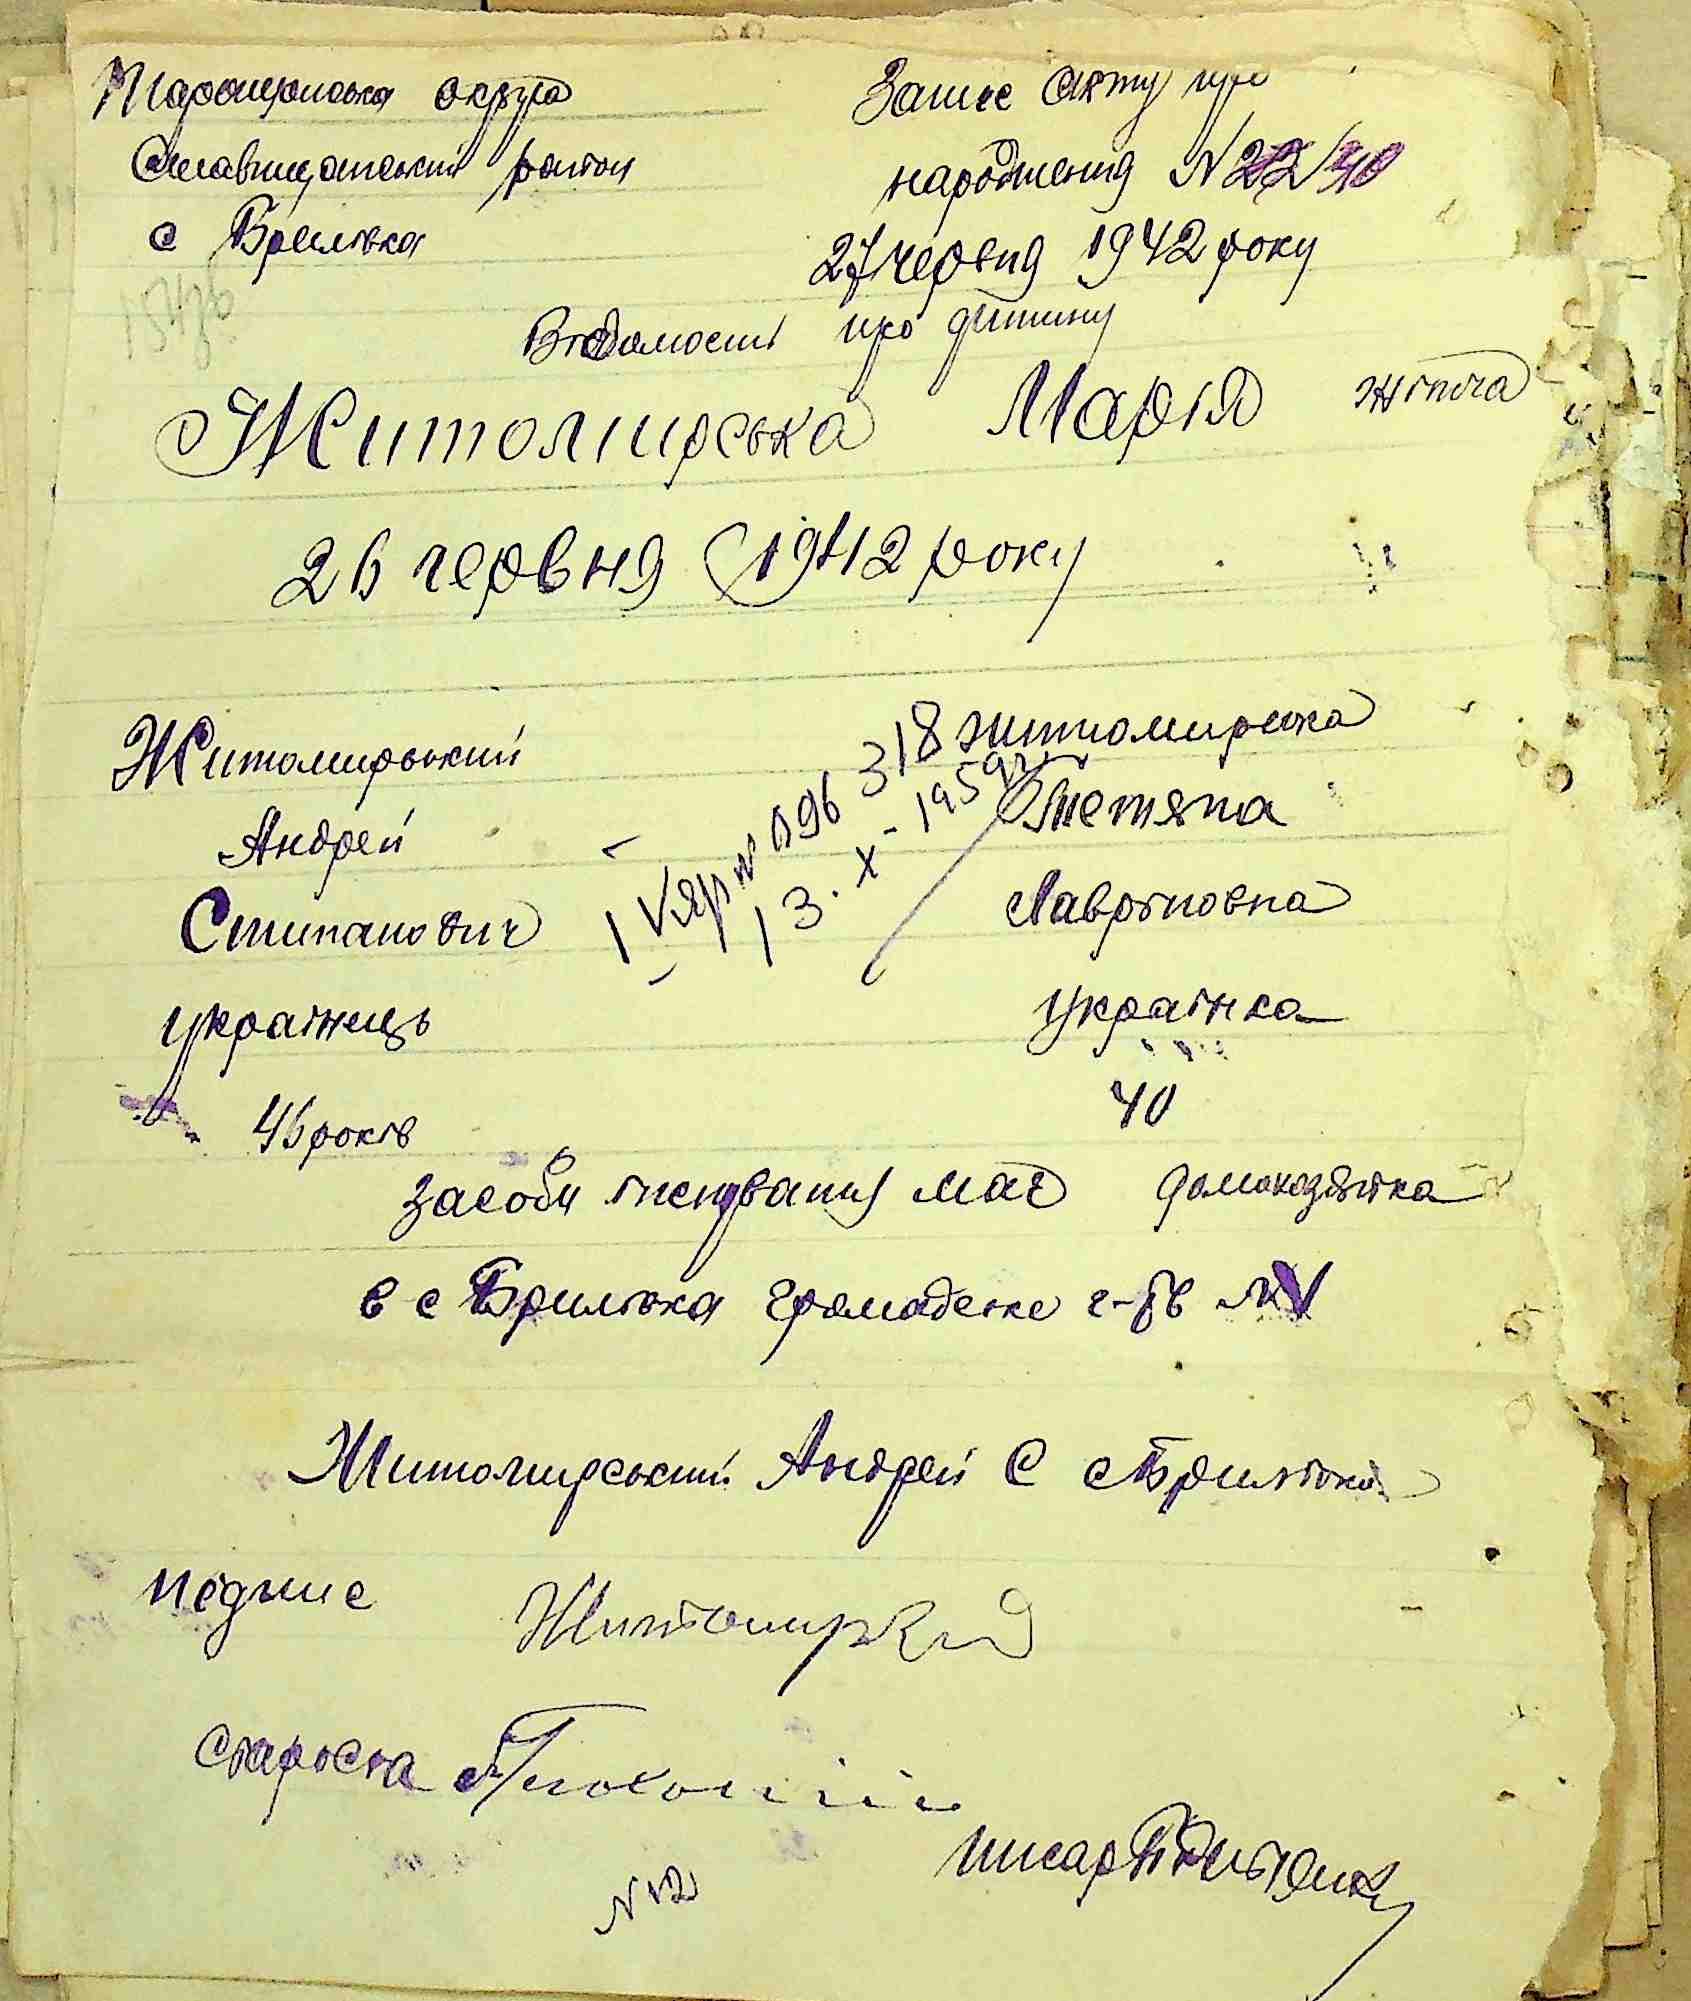 Таращанська округа
Ставищанський район
с Брилівка
Запис Акту про
народження N 22/40
27 червня 1942 року
Відомості про дитину
Житомирська Марія жіноча
26 червня 1942 року
Житомирський
Андрей
Степанович
українець
46 років
Житомирська
Тетяна
Лавріновна
українка
40
IV яр № 096318
13.X-1959р
засоби існування має домохазяйка
в с Брилівка громадське г-тв №V
Житомирський Андрей С с Брилівка
підпис Житомирский
староста
писар
N 12